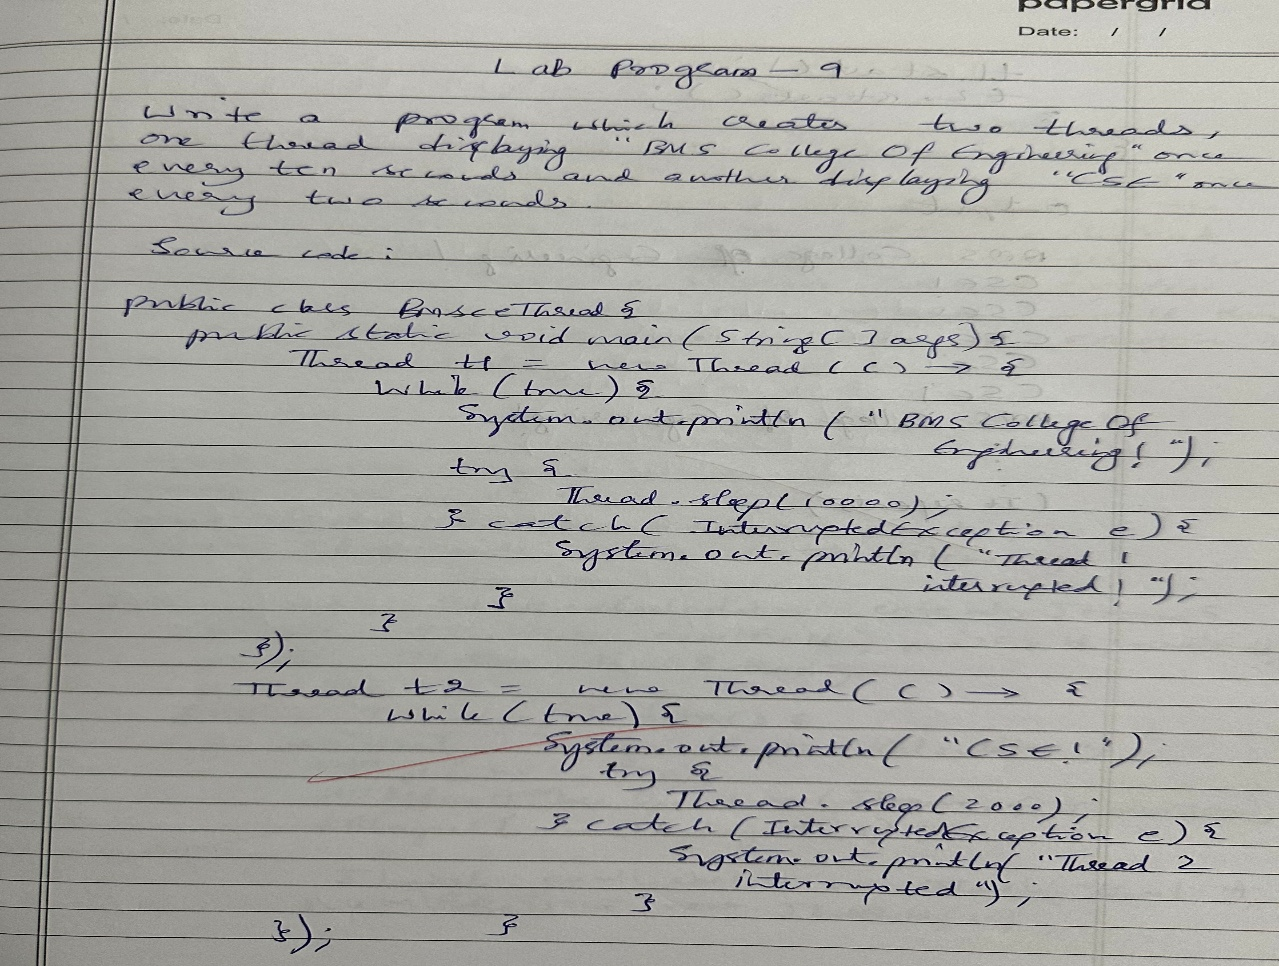 papergrid
Date: / /
Lab Program - 9
Write a program which creates two threads,
one thread displaying "BMS College Of Engineering" once
every ten seconds and another displaying "CSE" once
every two seconds.
Source code :
public class BmsceThread {
public static void main(String[] args) {
Thread t1 = new Thread (() -> {
While (true) {
System.out.println ("BMS College Of
Engineering!");
try {
Thread.sleep(10000);
} catch( InterruptedException e) {
System.out.println ("Thread 1
interrupted!");
}
}
});
Thread t2 = new Thread (() -> {
while (true) {
System.out.println( "CSE!");
try {
Thread.sleep(2000);
} catch (InterruptedException e) {
System.out.println( "Thread 2
interrupted");
}
}); }